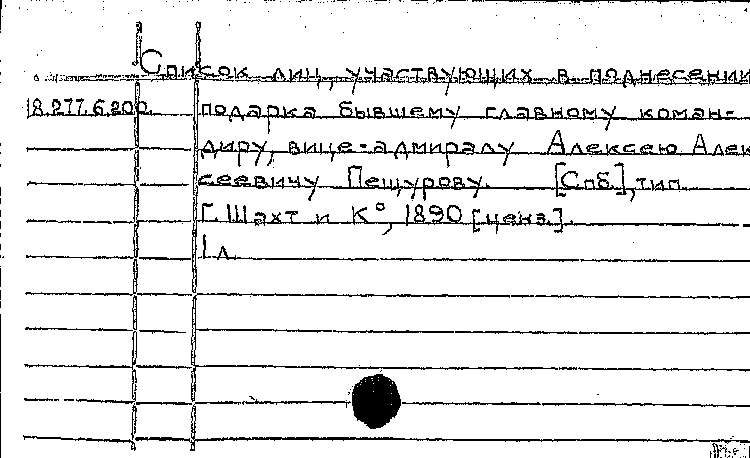 Список лиц, участвующих в поднесении
18.277.6.200. подарка бывшему главному коман-
диру, вице-адмиралу Алексею Алек
сеевичу Пещурову. [Спб.], тип.
Г. Шахт и К°, 1890 [ценз.].
1 л.